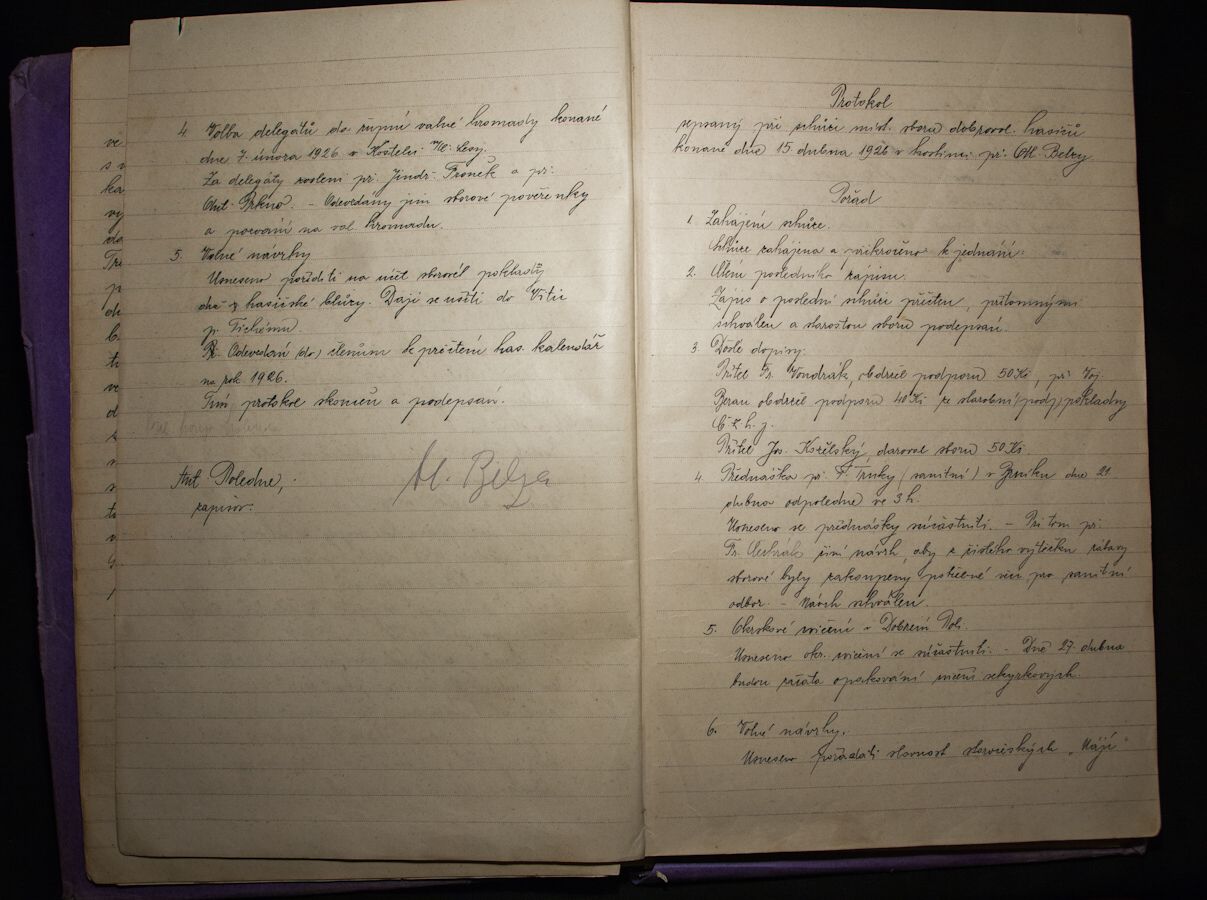 4. Volba delegátů do župní valné hromady konané
dne 7. února 1926 v Kostelci n/Č. Lesy.
Za delegáty zvoleni př. Jindř. Froněk a př.
Ant. Brkno. – Odevzdány jim sborové pověřenky
a pozvání na val. hromadu.
5. Volné návrhy
Usneseno poříditi na účet sborové pokladny
dvě hasičské blůzy. Dají se ušíti do Vitic
p. Tichému.
Odevzdán (do) členům k přečtení has. kalendář
na rok 1926.
Tím protokol skončen a podepsán.
Ant. Poledne,
zapisov.
Al. Belza
Protokol
sepsaný při schůzi míst. sboru dobrovol. hasičů
konané dne 15. dubna 1926 v hostinci př. Ol. Belzy
Pořad
1. Zahájení schůze.
Schůze zahájena a přikročeno k jednání:
2. Čtení posledního zápisu.
Zápis o poslední schůzi přečten, přítomnými
schválen a starostou sboru podepsán.
3. Došlé dopisy.
Přítel Fr. Vondrák, obdržel podporu 50 Kč, př. Voj.
Beran obdržel podporu 40 Kč ze starobní (podp) pokladny
Č. z. h. j.
Přítel Jos. Kozelský, daroval sboru 50 Kč.
4. Přednáška př. F. Trnky (sanitní) v dne 21
dubna odpoledne ve 3 h.
Usneseno se přednášky súčastniti. – Při tom př.
Fr. činí návrh, aby z čistého výtěžku zábavy
sborové byly zakoupeny potřebné věci pro sanitní
odbor. – Návrh schválen.
5. Okrskové cvičení v Dobrém Poli.
Usneseno okr. cvičení se súčastniti. – Dne 27. dubna
budou začata opakování cvičení sekyrkových.
6. Volné návrhy.
Usneseno pořádati slavnost staročeských „Májí"